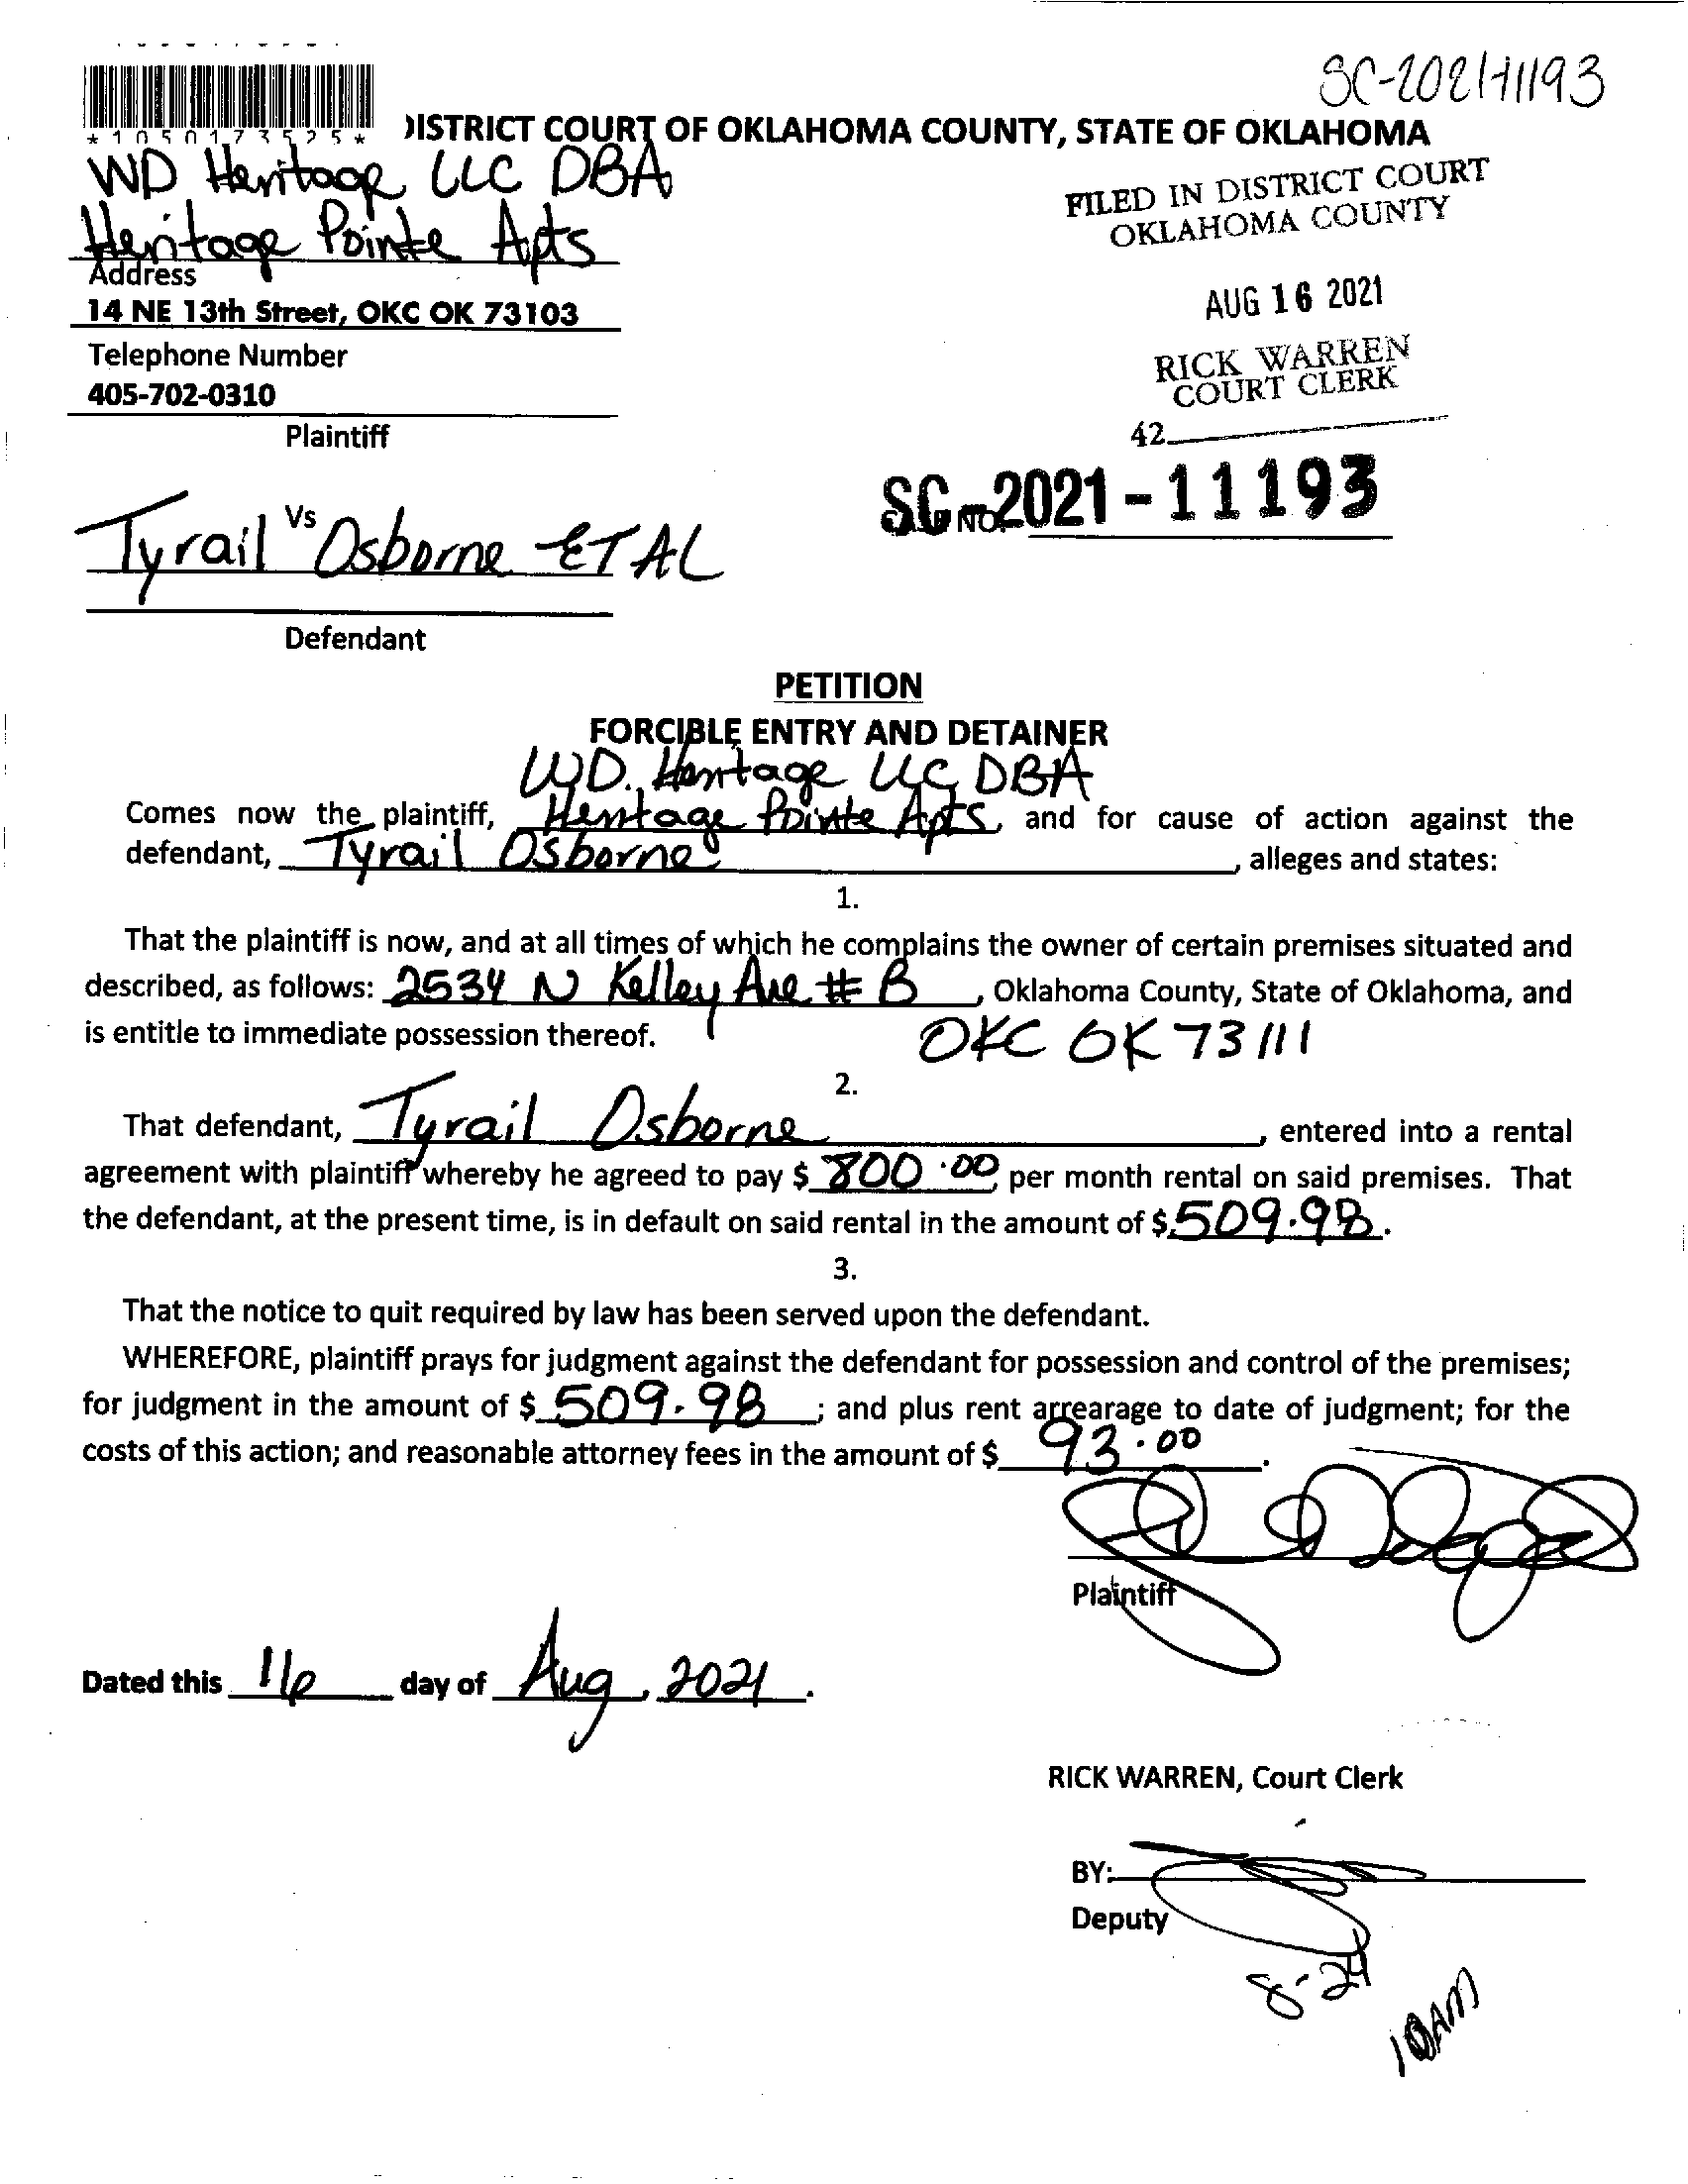 SC-2021-11193
*1050173525*
DISTRICT COURT OF OKLAHOMA COUNTY, STATE OF OKLAHOMA
WD Heritage LLC DBA
Heritage Pointe Apts
FILED IN DISTRICT COURT
OKLAHOMA COUNTY
Address
14 NE 13th Street, OKC OK 73103
AUG 16 2021
Telephone Number
405-702-0310
RICK WARREN
COURT CLERK
Plaintiff
42
SC-2021-11193
Vs
Tyrail Osborne ET AL
Defendant
PETITION
FORCIBLE ENTRY AND DETAINER
WD. Heritage LLC DBA
Comes now the plaintiff, Heritage Pointe Apts, and for cause of action against the
defendant, Tyrail Osborne, alleges and states:
1.
That the plaintiff is now, and at all times of which he complains the owner of certain premises situated and
described, as follows: 2534 N Kelley Ave # B, Oklahoma County, State of Oklahoma, and
is entitle to immediate possession thereof. OKC OK 73111
2.
That defendant, Tyrail Osborne, entered into a rental
agreement with plaintiff whereby he agreed to pay $ 800.00 per month rental on said premises. That
the defendant, at the present time, is in default on said rental in the amount of $ 509.98.
3.
That the notice to quit required by law has been served upon the defendant.
WHEREFORE, plaintiff prays for judgment against the defendant for possession and control of the premises;
for judgment in the amount of $ 509.98; and plus rent arrearage to date of judgment; for the
costs of this action; and reasonable attorney fees in the amount of $ 93.00.
Plaintiff
Dated this 16 day of Aug, 2021.
RICK WARREN, Court Clerk
BY:
Deputy
8-24
10AM